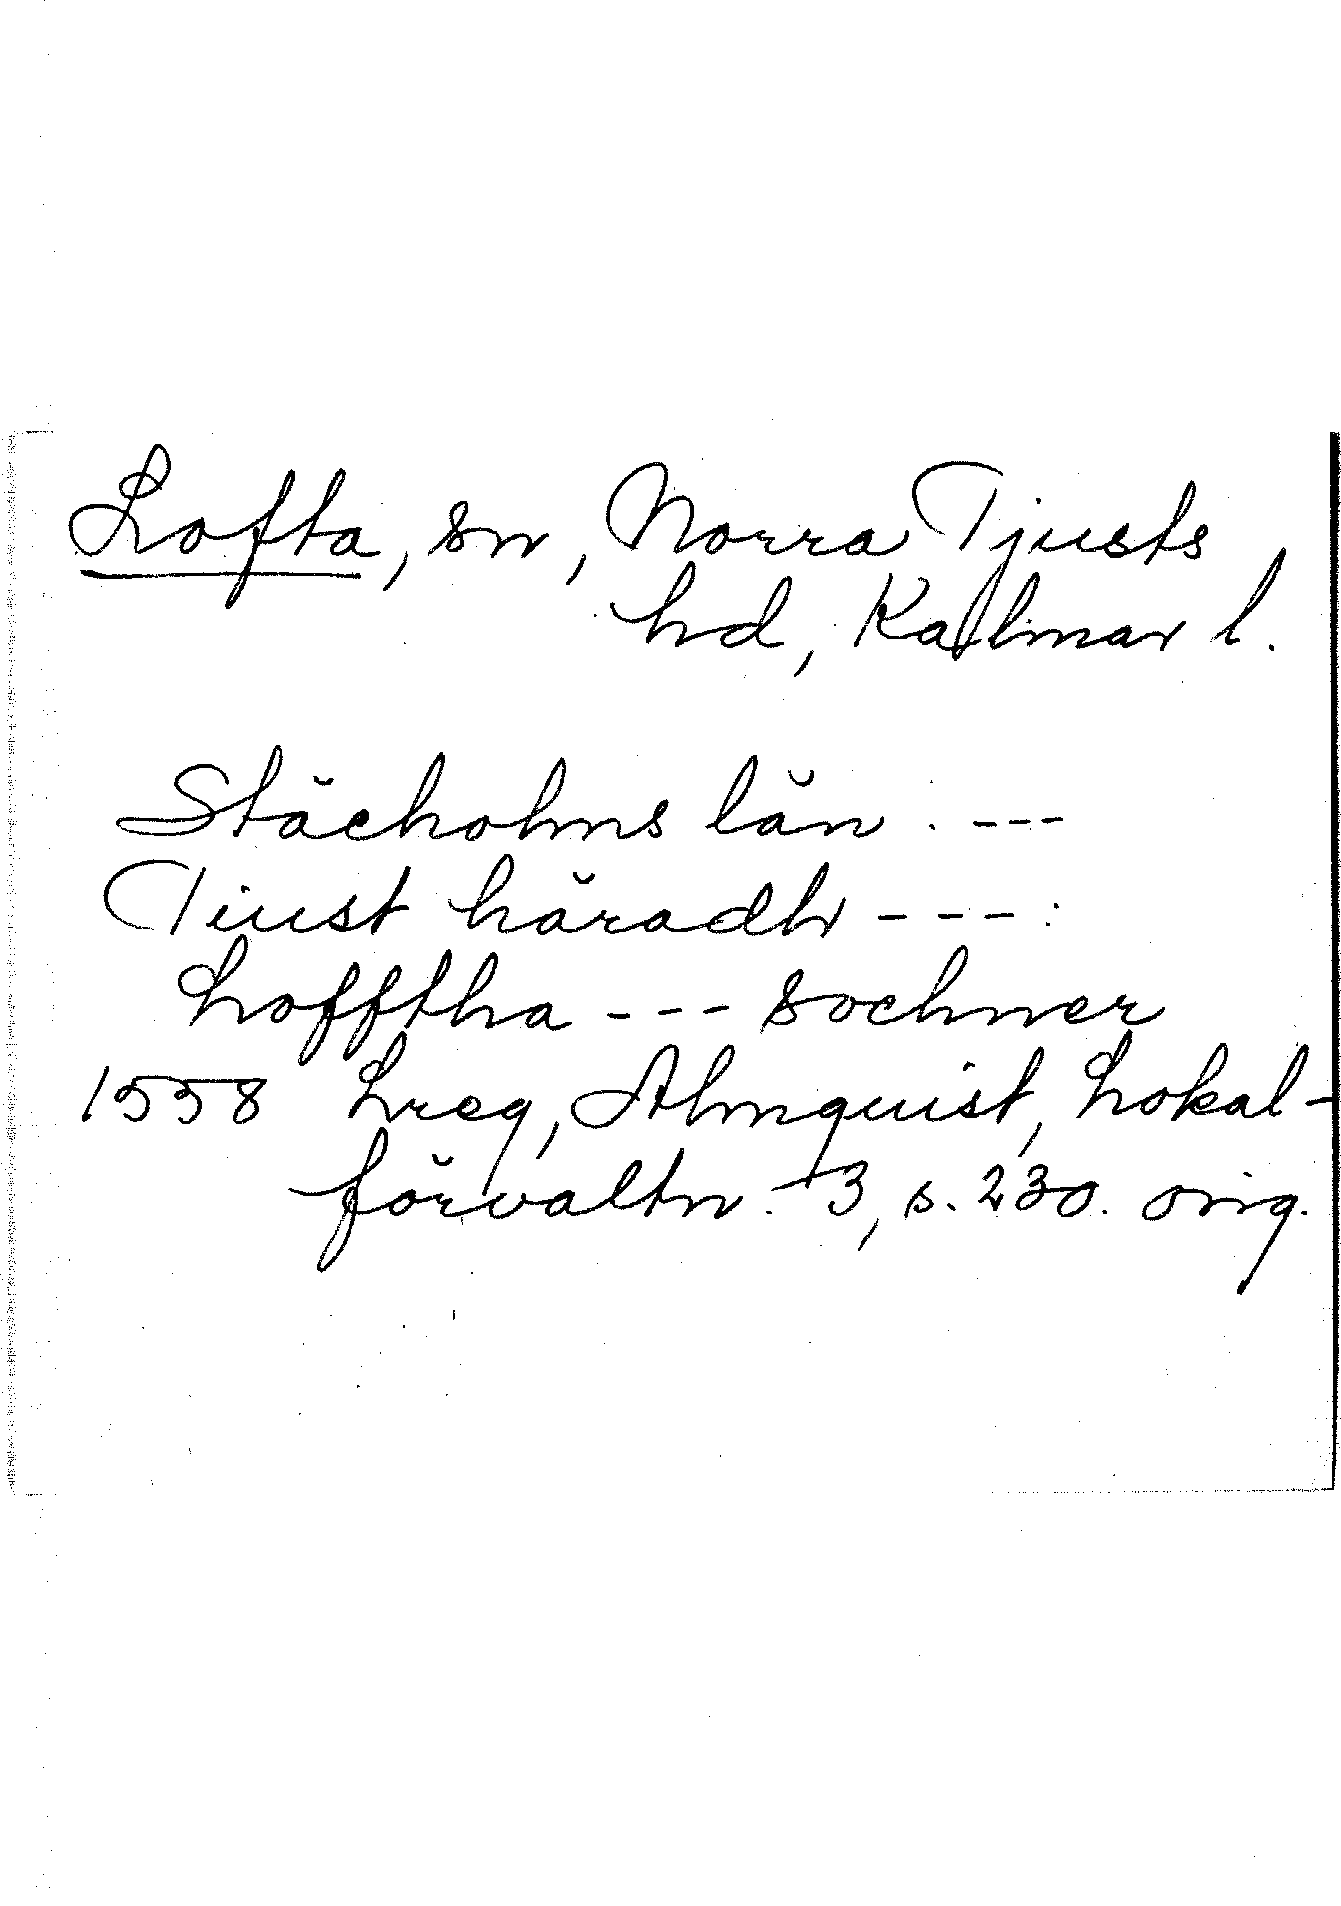 Lofta, sn, Norra Tjusts
hd, Kalmar l.
Stächolms län . ---
Tiust häradh --- :
Lofftha --- sochner
1558 Lreg, Almquist, Lokal-
förvaltn. 3, s. 230. orig.